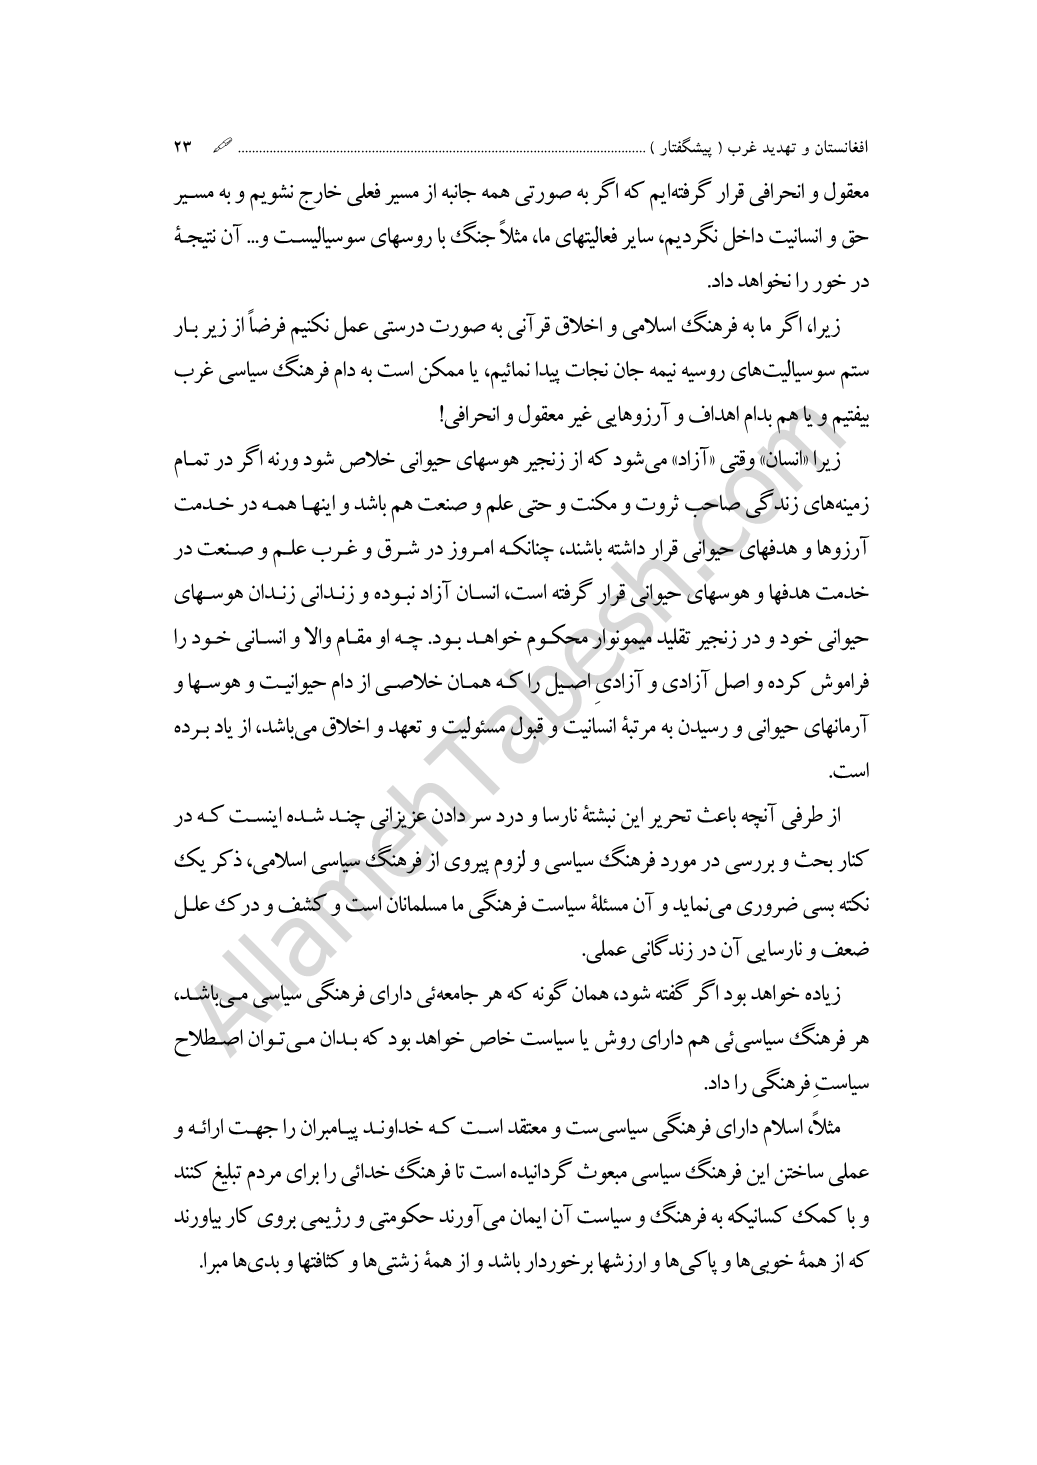 افغانستان و تهدید غرب ( پیشگفتار ) ........................................................................................................... ۲۳
معقول و انحرافی قرار گرفته‌ایم که اگر به صورتی همه جانبه از مسیر فعلی خارج نشویم و به مسیر
حق و انسانیت داخل نگردیم، سایر فعالیتهای ما، مثلاً جنگ با روسهای سوسیالیست و... آن نتیجهٔ
در خور را نخواهد داد.
زیرا، اگر ما به فرهنگ اسلامی و اخلاق قرآنی به صورت درستی عمل نکنیم فرضاً از زیر بار
ستم سوسیالیت‌های روسیه نیمه جان نجات پیدا نمائیم، یا ممکن است به دام فرهنگ سیاسی غرب
بیفتیم و یا هم بدام اهداف و آرزوهایی غیر معقول و انحرافی!
زیرا «انسان» وقتی «آزاد» می‌شود که از زنجیر هوسهای حیوانی خلاص شود ورنه اگر در تمام
زمینه‌های زندگی صاحب ثروت و مکنت و حتی علم و صنعت هم باشد و اینها همه در خدمت
آرزوها و هدفهای حیوانی قرار داشته باشند، چنانکه امروز در شرق و غرب علم و صنعت در
خدمت هدفها و هوسهای حیوانی قرار گرفته است، انسان آزاد نبوده و زندانی زندان هوسهای
حیوانی خود و در زنجیر تقلید میمونوار محکوم خواهد بود. چه او مقام والا و انسانی خود را
فراموش کرده و اصل آزادی و آزادیِ اصیل را که همان خلاصی از دام حیوانیت و هوسها و
آرمانهای حیوانی و رسیدن به مرتبهٔ انسانیت و قبول مسئولیت و تعهد و اخلاق می‌باشد، از یاد برده
است.
از طرفی آنچه باعث تحریر این نبشتهٔ نارسا و درد سر دادن عزیزانی چند شده اینست که در
کنار بحث و بررسی در مورد فرهنگ سیاسی و لزوم پیروی از فرهنگ سیاسی اسلامی، ذکر یک
نکته بسی ضروری می‌نماید و آن مسئلهٔ سیاست فرهنگی ما مسلمانان است و کشف و درک علل
ضعف و نارسایی آن در زندگانی عملی.
زیاده خواهد بود اگر گفته شود، همان گونه که هر جامعه‌ئی دارای فرهنگی سیاسی می‌باشد،
هر فرهنگ سیاسی‌ئی هم دارای روش یا سیاست خاص خواهد بود که بدان می‌توان اصطلاح
سیاستِ فرهنگی را داد.
مثلاً، اسلام دارای فرهنگی سیاسی‌ست و معتقد است که خداوند پیامبران را جهت ارائه و
عملی ساختن این فرهنگ سیاسی مبعوث گردانیده است تا فرهنگ خدائی را برای مردم تبلیغ کنند
و با کمک کسانیکه به فرهنگ و سیاست آن ایمان می‌آورند حکومتی و رژیمی بروی کار بیاورند
که از همهٔ خوبی‌ها و پاکی‌ها و ارزشها برخوردار باشد و از همهٔ زشتی‌ها و کثافتها و بدی‌ها مبرا.
AllamehTabesh.com